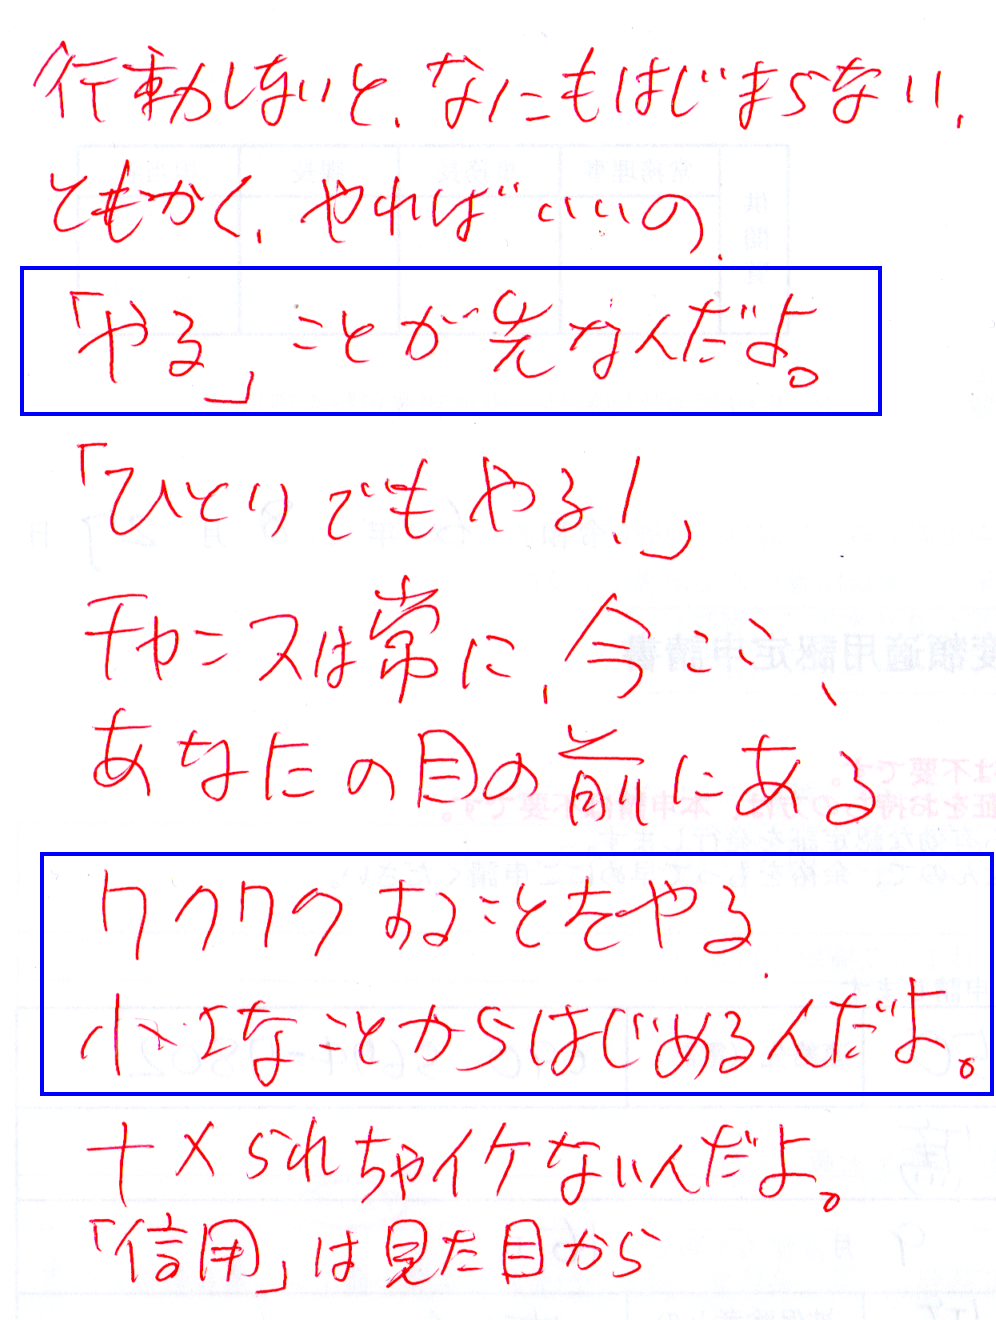 行動しないと、なにもはじまらない、
ともかく、やればいいの、
「やる」ことが先なんだよ。
「ひとりでもやる!」
チャンスは常に、今ここ、
あなたの目の前にある
ワクワクすることをやる、
小さなことからはじめるんだよ。
ナメられちゃイケないんだよ。
「信用」は見た目から